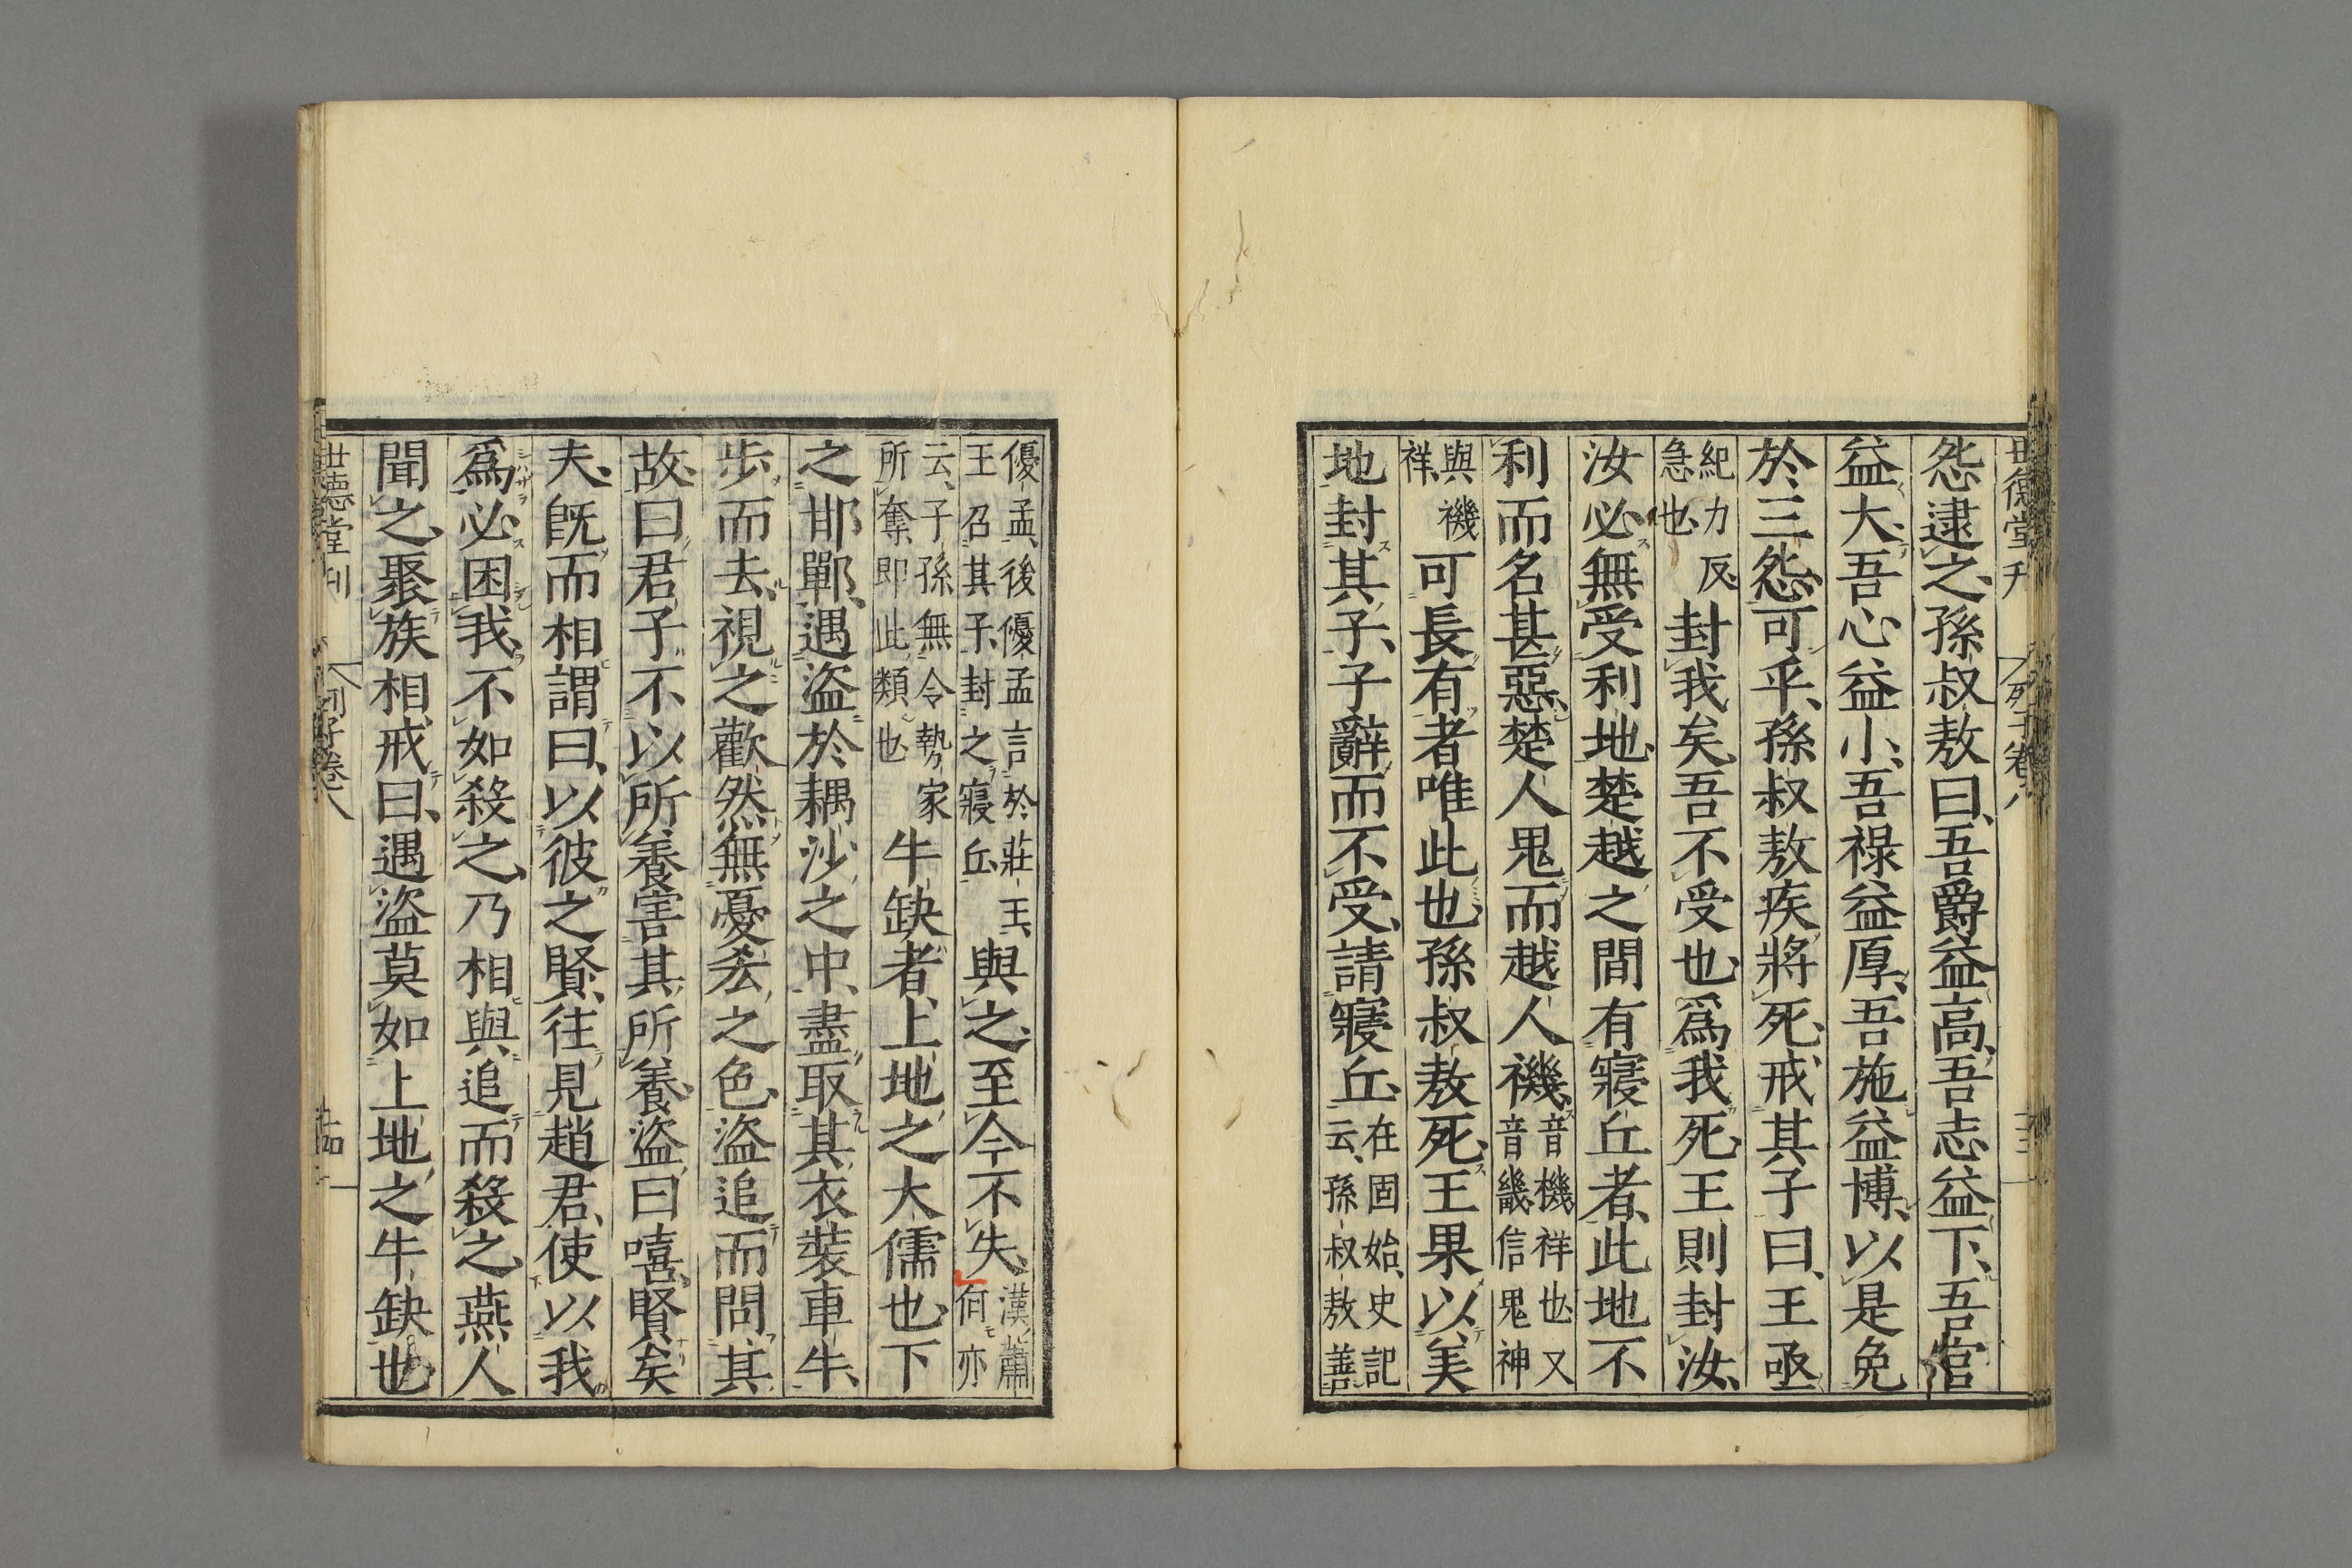 世德堂刊
列子卷八
怨逮之孫叔敖曰吾爵益高吾志益下吾官
益大吾心益小吾祿益厚吾施益博以是免
於三怨可乎孫叔敖疾將死戒其子曰王亟
紀力反
急也
封我矣吾不受也爲我死王則封汝
汝必無受利地楚越之間有寢丘者此地不
利而名甚惡楚人鬼而越人禨
音機祥也又
音畿信鬼神
與禨
祥
可長有者唯此也孫叔敖死王果以美
地封其子子辭而不受請寢丘
在固始史記
云孫叔敖善
優孟後優孟言於莊王
王召其子封之寢丘
與之至今不失
漢蕭
何亦
云子孫無令勢家
所奪即此類也
牛缺者上地之大儒也下
之邯鄲遇盜於耦沙之中盡取其衣裝車牛
步而去視之歡然無憂㤅之色盜追而問其
故曰君子不以所養害其所養盜曰嘻賢矣
夫既而相謂曰以彼之賢往見趙君使以我
爲必困我不如殺之乃相與追而殺之燕人
聞之聚族相戒曰遇盜莫如上地之牛缺也
世德堂刊
列子卷八
十四